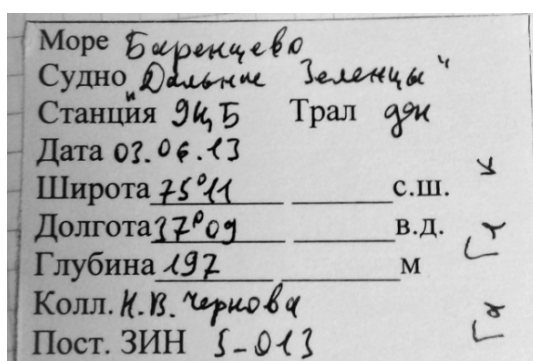 Море Баренцево
Судно "Дальние Зеленцы"
Станция 9Ц,Б Трал дон
Дата 03.06.13
Широта 75°11 с.ш.
Долгота 37°09 в.д.
Глубина 197 м
Колл. Н.В. Чернова
Пост. ЗИН 5-013